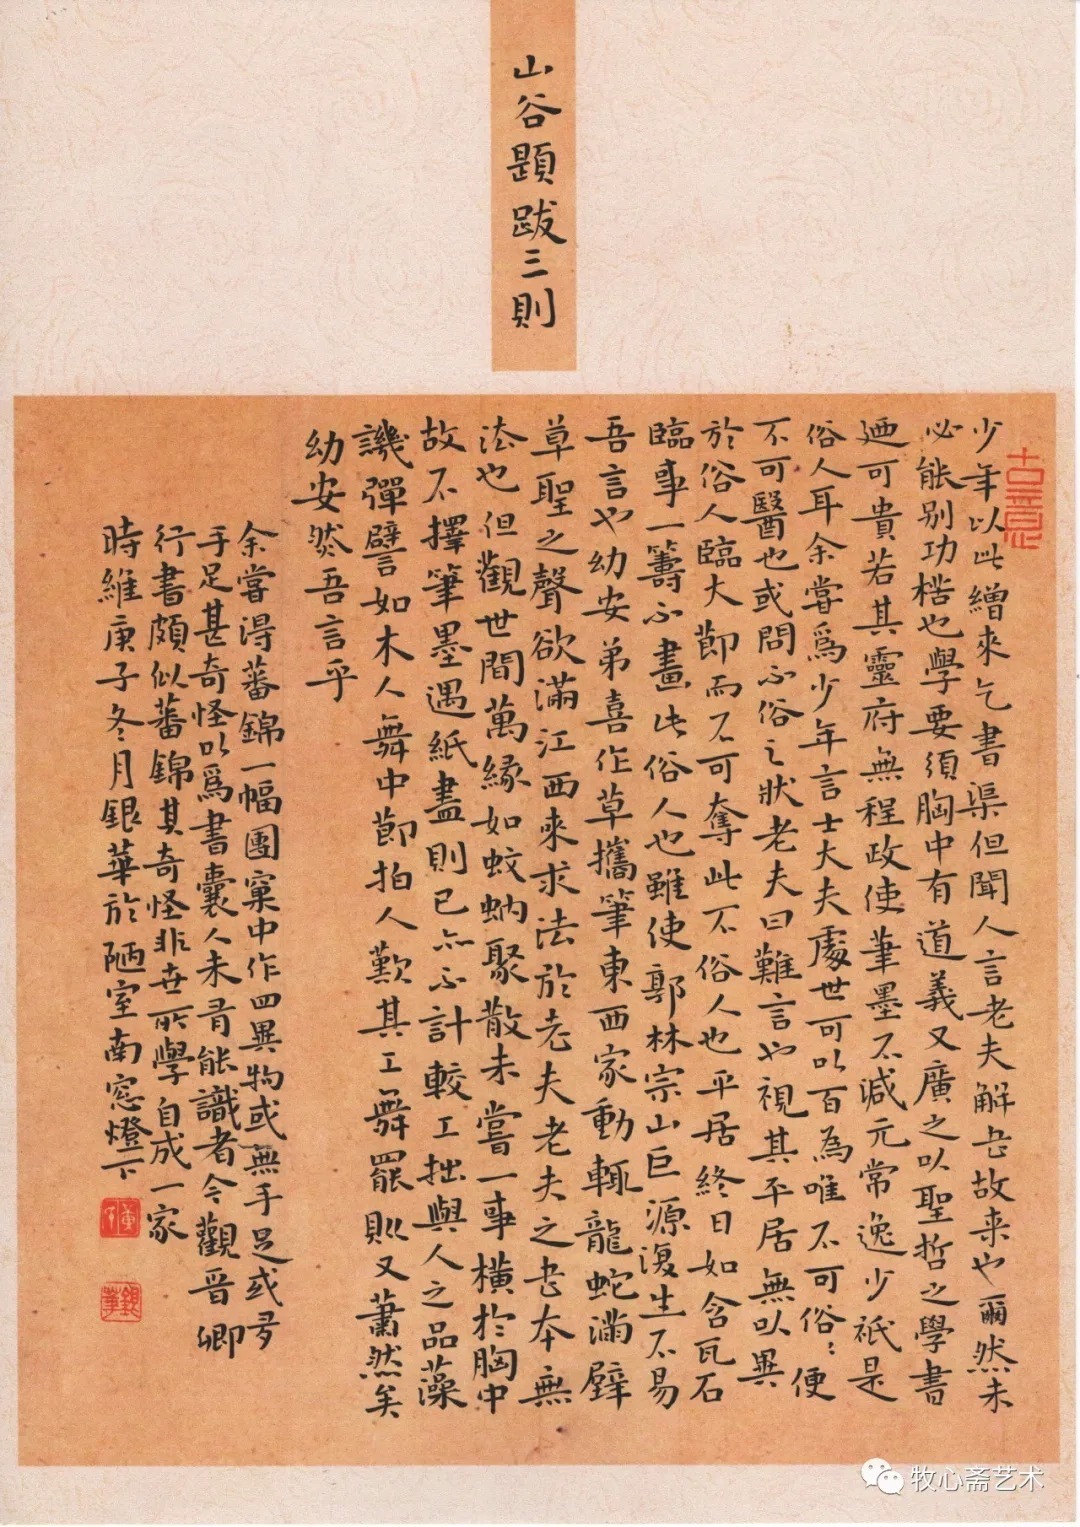 山谷題跋三則
少年以此繒來乞書渠但聞人言老夫解書故来也爾然未
必能别功楛也學書要須胸中有道義又廣之以聖哲之學書
廼可貴若其靈府無程政使筆墨不減元常逸少祇是
俗人耳余嘗爲少年言士大夫處世可以百為唯不可俗:便
不可醫也或問不俗之狀老夫曰難言也視其平居無以異
於俗人臨大節而不可奪此不俗人也平居終日如含瓦石
臨事一籌不畫此俗人也雖使郭林宗山巨源復生不易
吾言也幼安弟喜作草攜筆東西家動輒龍蛇滿壁
草聖之聲欲滿江西來求法於老夫老夫之書本無
法也但觀世間萬緣如蚊蚋聚散未嘗一事橫於胸中
故不擇筆墨遇紙盡則已亦不計較工拙與人之品藻
譏彈譬如木人舞中節拍人歎其工舞罷則又蕭然矣
幼安然吾言乎
余嘗得蕃錦一幅團窠中作四異物或無手足或多
手足甚奇怪以爲書囊人未有能識者今觀晋卿
行書頗似蕃錦其奇怪非世所學自成一家
時維庚子冬月銀華於陋室南窓燈下
古意
銀華
牧心斋艺术